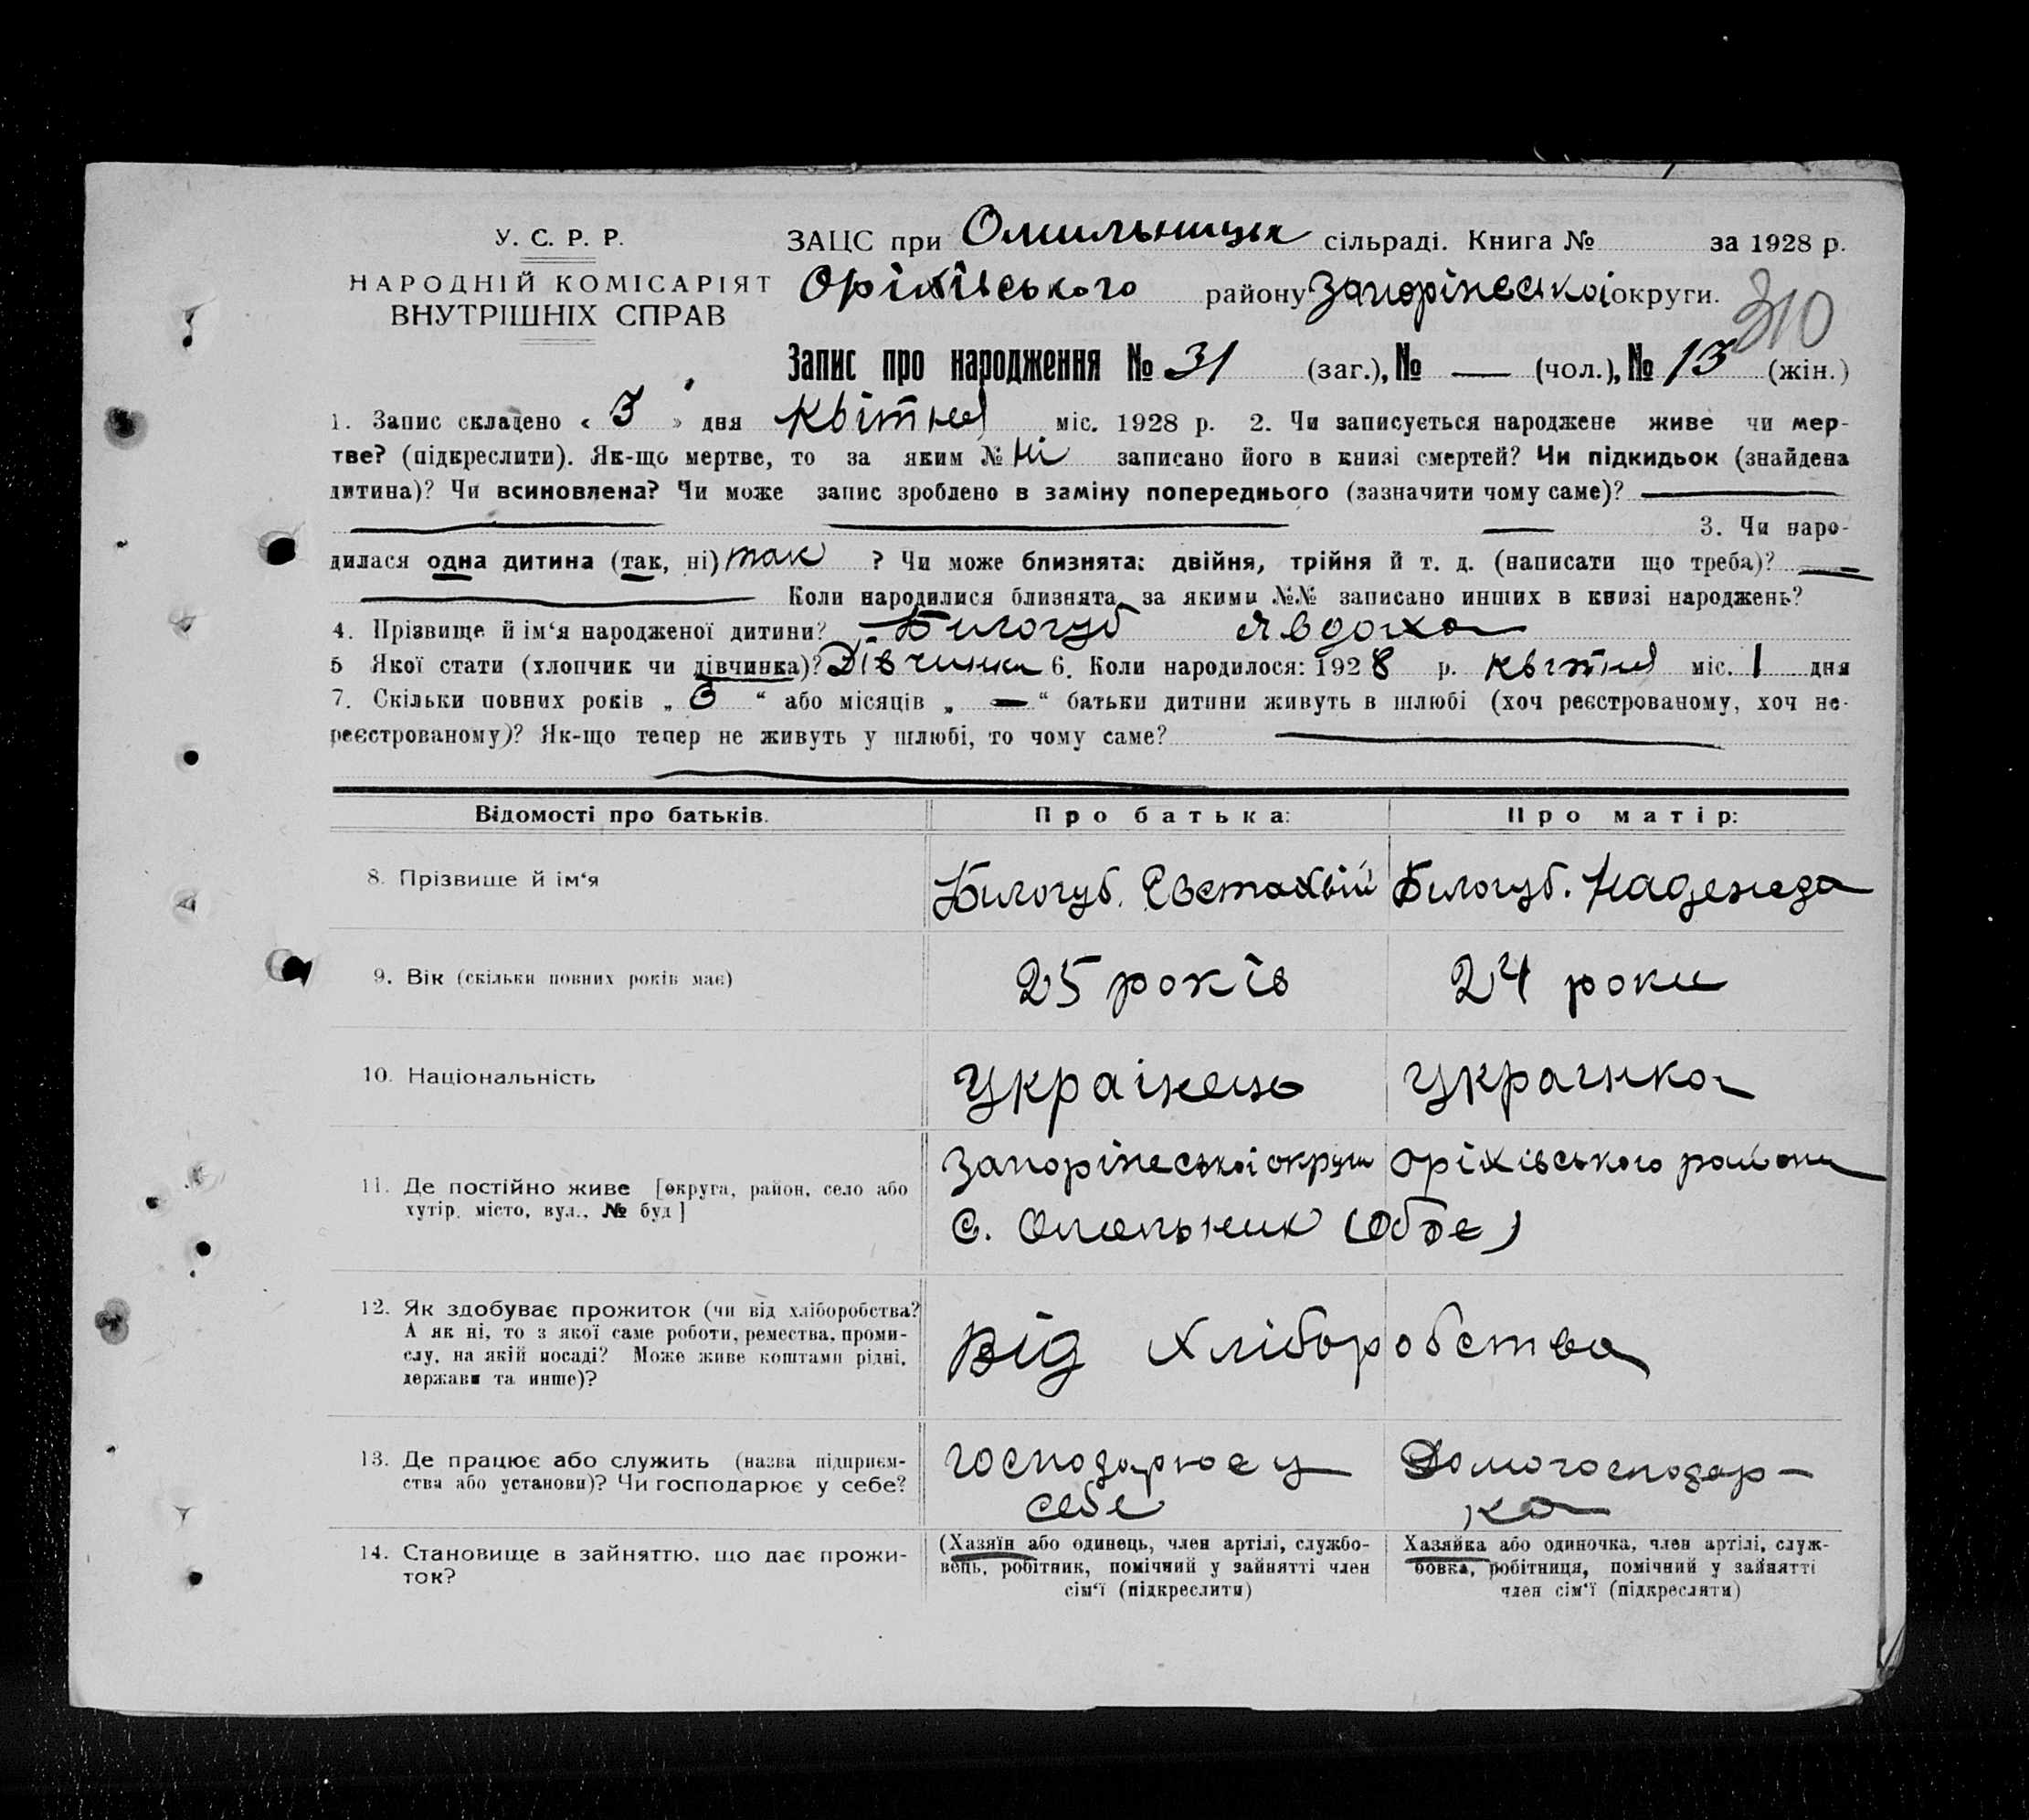 У. С. Р. Р.
НАРОДНІЙ КОМІСАРІЯТ
ВНУТРІШНІХ СПРАВ
ЗАЦС при Омильницьк сільраді. Книга № за 1928 р.
Оріхівського району Запоріжської округи.
310
Запис про народження № 31 (заг.), № — (чол.), № 13 (жін.)
1. Запис складено « 3 » дня квітня міс. 1928 р. 2. Чи записується народжене живе чи мер-
тве? (підкреслити). Як-що мертве, то за яким № ні записано його в книзі смертей? Чи підкидьок (знайдена
дитина)? Чи всиновлена? Чи може запис зроблено в заміну попереднього (зазначити чому саме)? —
3. Чи наро-
дилася одна дитина (так, ні) так ? Чи може близнята: двійня, трійня й т. д. (написати що треба)? —
— Коли народилися близнята за якими №№ записано инших в книзі народжень?
4. Прізвище й ім'я народженої дитини? Билогуб Явдоха
5 Якої стати (хлопчик чи дівчинка)? Дівчинка 6. Коли народилося: 1928 р. квітня міс. 1 дня
7. Скільки повних років „ 6 “ або місяців „ — “ батьки дитини живуть в шлюбі (хоч реєстрованому, хоч не-
реєстрованому)? Як-що тепер не живуть у шлюбі, то чому саме? —
Відомості про батьків. Про батька: Про матір:
8. Прізвище й ім'я Билогуб. Євстахвій Билогуб. Надежда
9. Вік (скільки повних років має) 25 років 24 роки
10. Національність Українець Українка
11. Де постійно живе [округа, район, село або
хутір, місто, вул., № буд]
Запоріжської округи Оріхівського району
с. Омельник (обоє)
12. Як здобуває прожиток (чи від хліборобства?
А як ні, то з якої саме роботи, ремества, проми-
слу, на якій посаді? Може живе коштами рідні,
держави та инше)?
Від хліборобства
13. Де працює або служить (назва підприєм-
ства або установи)? Чи господарює у себе?
господарює у
себе
Домогосподар-
ка
14. Становище в зайняттю, що дає прожи-
ток?
(Хазяїн або одинець, член артілі, службо-
вець, робітник, помічний у зайнятті член
сім'ї (підкреслити)
Хазяйка або одиночка, член артілі, служ-
бовка, робітниця, помічний у зайнятті
член сім'ї (підкреслити)